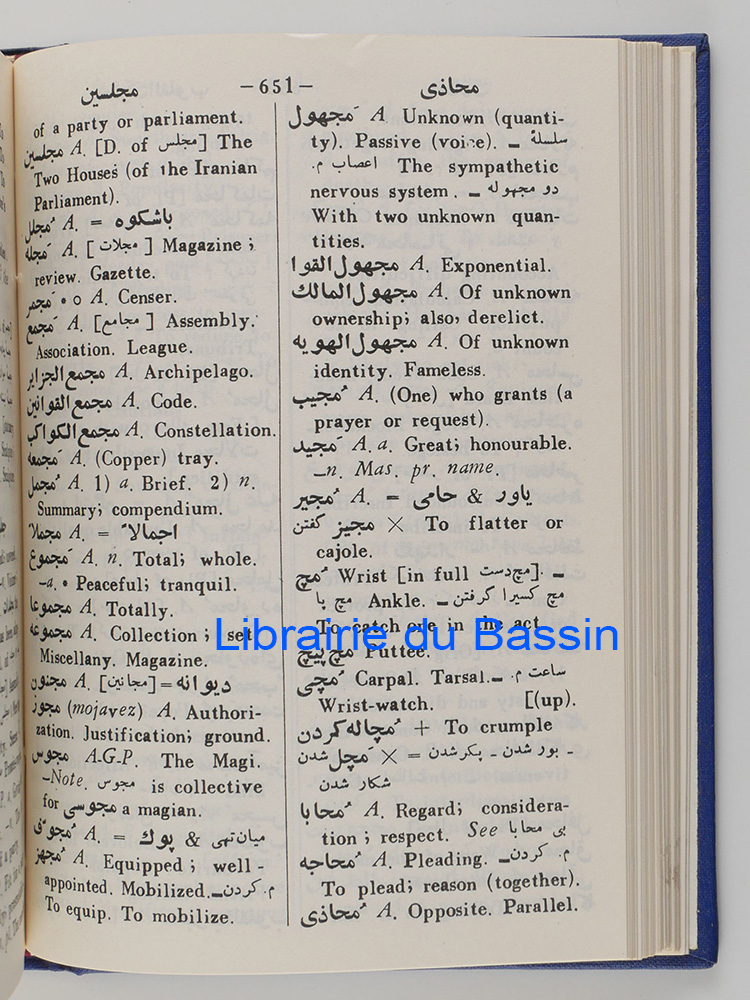 مجلسین
—651—
محاذی
of a party or parliament.
مجلسین A. [D. of مجلس] The
Two Houses (of the Iranian
Parliament).
مُجلل A. = باشکوه
مَجله A. [مجلات] Magazine ;
review. Gazette.
مجمر • ه A. Censer.
مَجمع A. [مجامع] Assembly.
Association. League.
مجمع الجزایر A. Archipelago.
مجمع القوانین A. Code.
مجمع الکواکب A. Constellation.
مَجمعه A. (Copper) tray.
مُجمل A. 1) a. Brief. 2) n.
Summary; compendium.
مجملاً A. = اجمالاً
مَجموع A. n. Total; whole.
—a. • Peaceful; tranquil.
مجموعا A. Totally.
مجموعه A. Collection ; set
Miscellany. Magazine.
مجنون A. [مجانین] = دیوانه
مجوز (mojavez) A. Authori-
zation. Justification; ground.
مجوس A.G.P. The Magi.
—Note. مجوس is collective
for مجوسی a magian.
مُجوّف A. = پوك & میان‌تهی
مُجهز A. Equipped ; well-
appointed. Mobilized.—م. کردن
To equip. To mobilize.
مَجهول A. Unknown (quanti-
ty). Passive (voice). — سلسلهٔ
اعصاب م. The sympathetic
nervous system. — دو مجهوله
With two unknown quan-
tities.
مجهول القوا A. Exponential.
مجهول المالك A. Of unknown
ownership; also, derelict.
مجهول الهویه A. Of unknown
identity. Fameless.
مُجیب A. (One) who grants (a
prayer or request).
مَجید A. a. Great; honourable.
—n. Mas. pr. name.
مُجیر A. = یاور & حامی
مجیز گفتن × To flatter or
cajole.
مچ Wrist [in full مچ‌دست]. —
مچ پا Ankle. — مچ کسیرا گرفتن
To catch one in the act.
مچ پیچ Puttee.
مُچی Carpal. Tarsal.— ساعت م.
Wrist-watch. [(up).
مُچاله کردن + To crumple
مَچل شدن × = بور شدن - پکر شدن -
شکار شدن
مُحابا A. Regard; considera-
tion ; respect. See بی محابا
مُحاجه A. Pleading. — م. کردن
To plead; reason (together).
مُحاذی A. Opposite. Parallel.
Librairie du Bassin